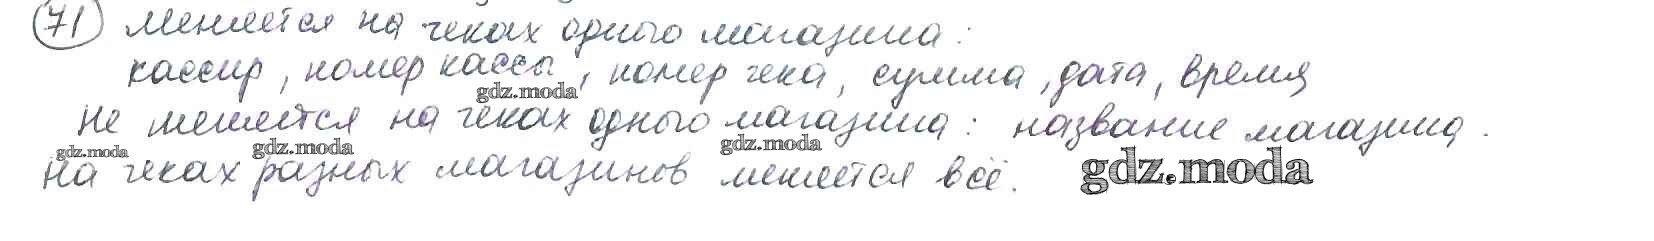 71 меняется на чеках одного магазина:
кассир, номер кассы, номер чека, сумма, дата, время
gdz.moda
не меняется на чеках одного магазина: название магазина.
gdz.moda gdz.moda gdz.moda
на чеках разных магазинов меняется всё. gdz.moda